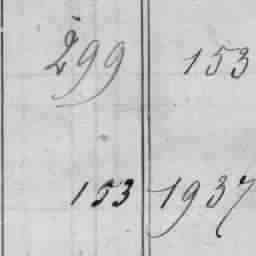 299 153
153 1937